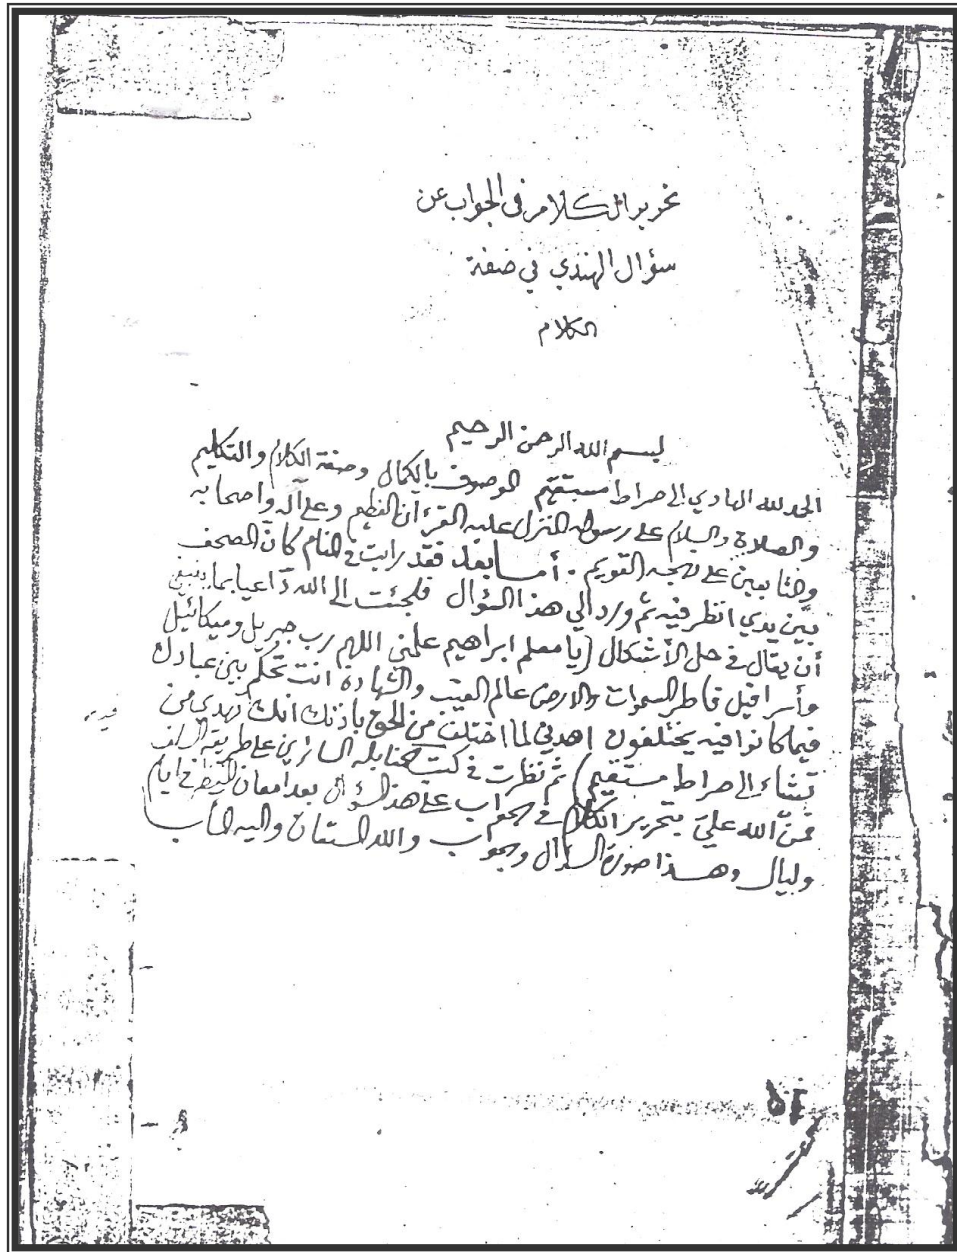 تحرير الكلام في الجواب عن
سؤال الهندي في صفة
الكلام
بسم الله الرحمن الرحيم
الحمد لله الهادي إلى صراط مستقيم الموصوف بالكمال وصفة الكلام والتكليم
والصلاة والسلام على رسوله المنزل عليه القرءآن العظيم وعلى آله واصحابه
والتابعين على نهجه القويم . أما بعد فقد رايت في المنام كأن المصحف
بين يدي انظر فيه ثم ورد إلي هذا السؤال فلجئت إلى الله داعيا بما ينبغي
أن يقال في حل الأشكال (يا معلم ابراهيم علمني اللهم رب جبريل وميكائيل
وأسرافيل فاطر السموات والارض عالم الغيب والشهادة انت تحكم بين عبادك
فيما كانوا فيه يختلفون اهدني لما اختلف من الحق باذنك انك تهدي من
تشاء إلى صراط مستقيم) ثم نظرت في كتب الحنابلة السائرين على طريقة السلف
فمنّ الله عليّ بتحرير الكلام في الجواب على هذا السؤال بعد امعان النظر في ايام
وليال وهذا صورة السؤال والجواب والله المستعان واليه المأب